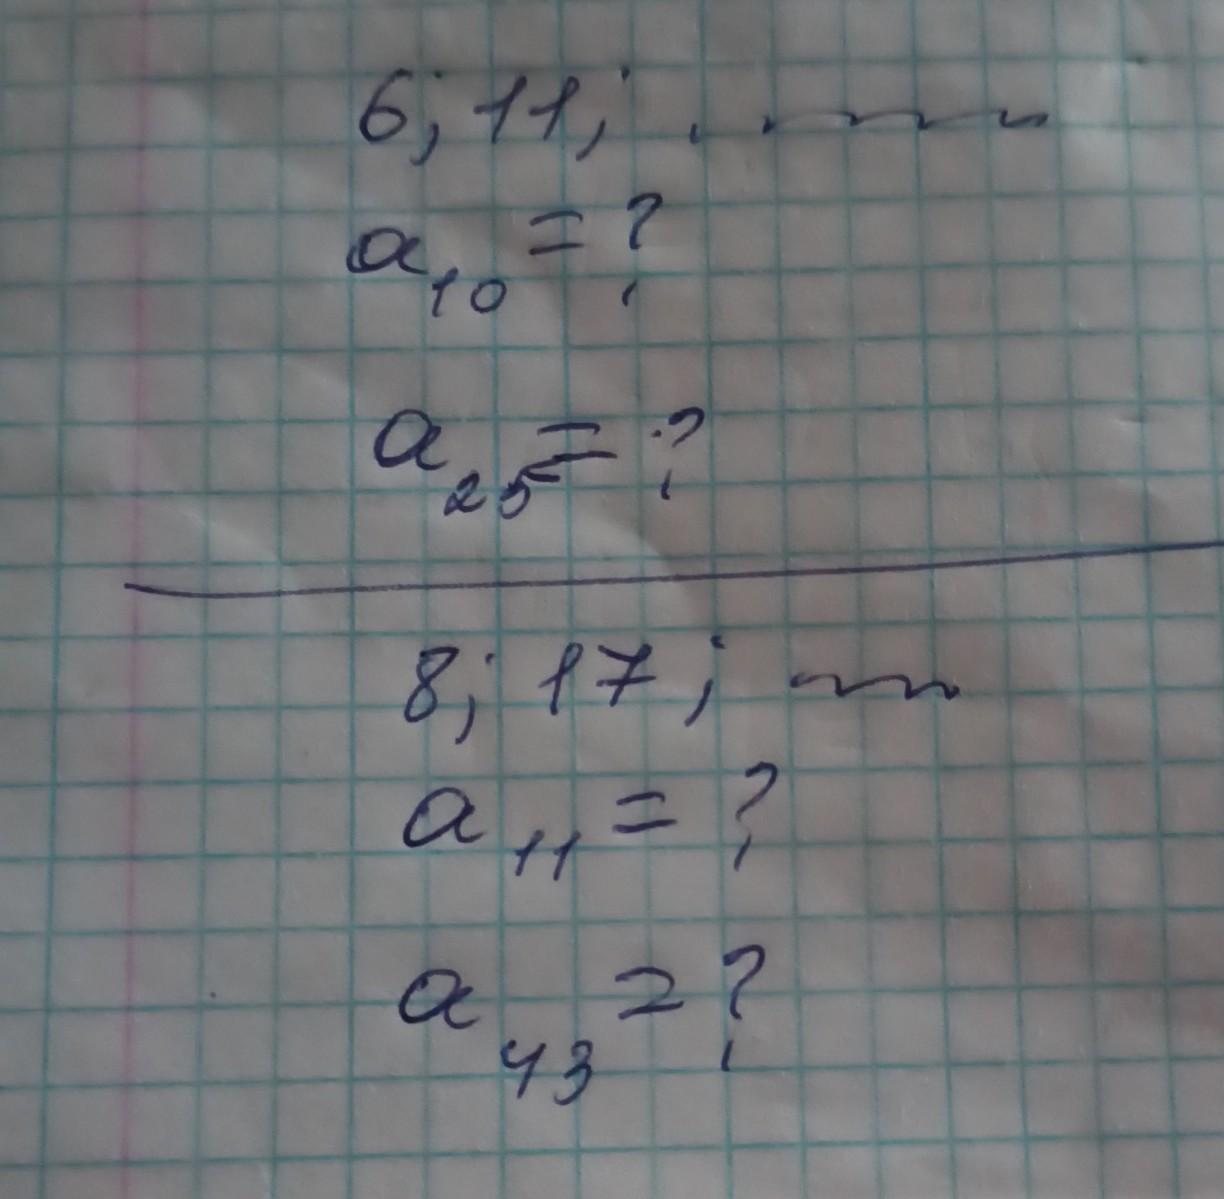 6; 11; . ~~~
a₁₀ = ?
a₂₅ = ?
8; 17; ~~~
a₁₁ = ?
a₄₃ = ?